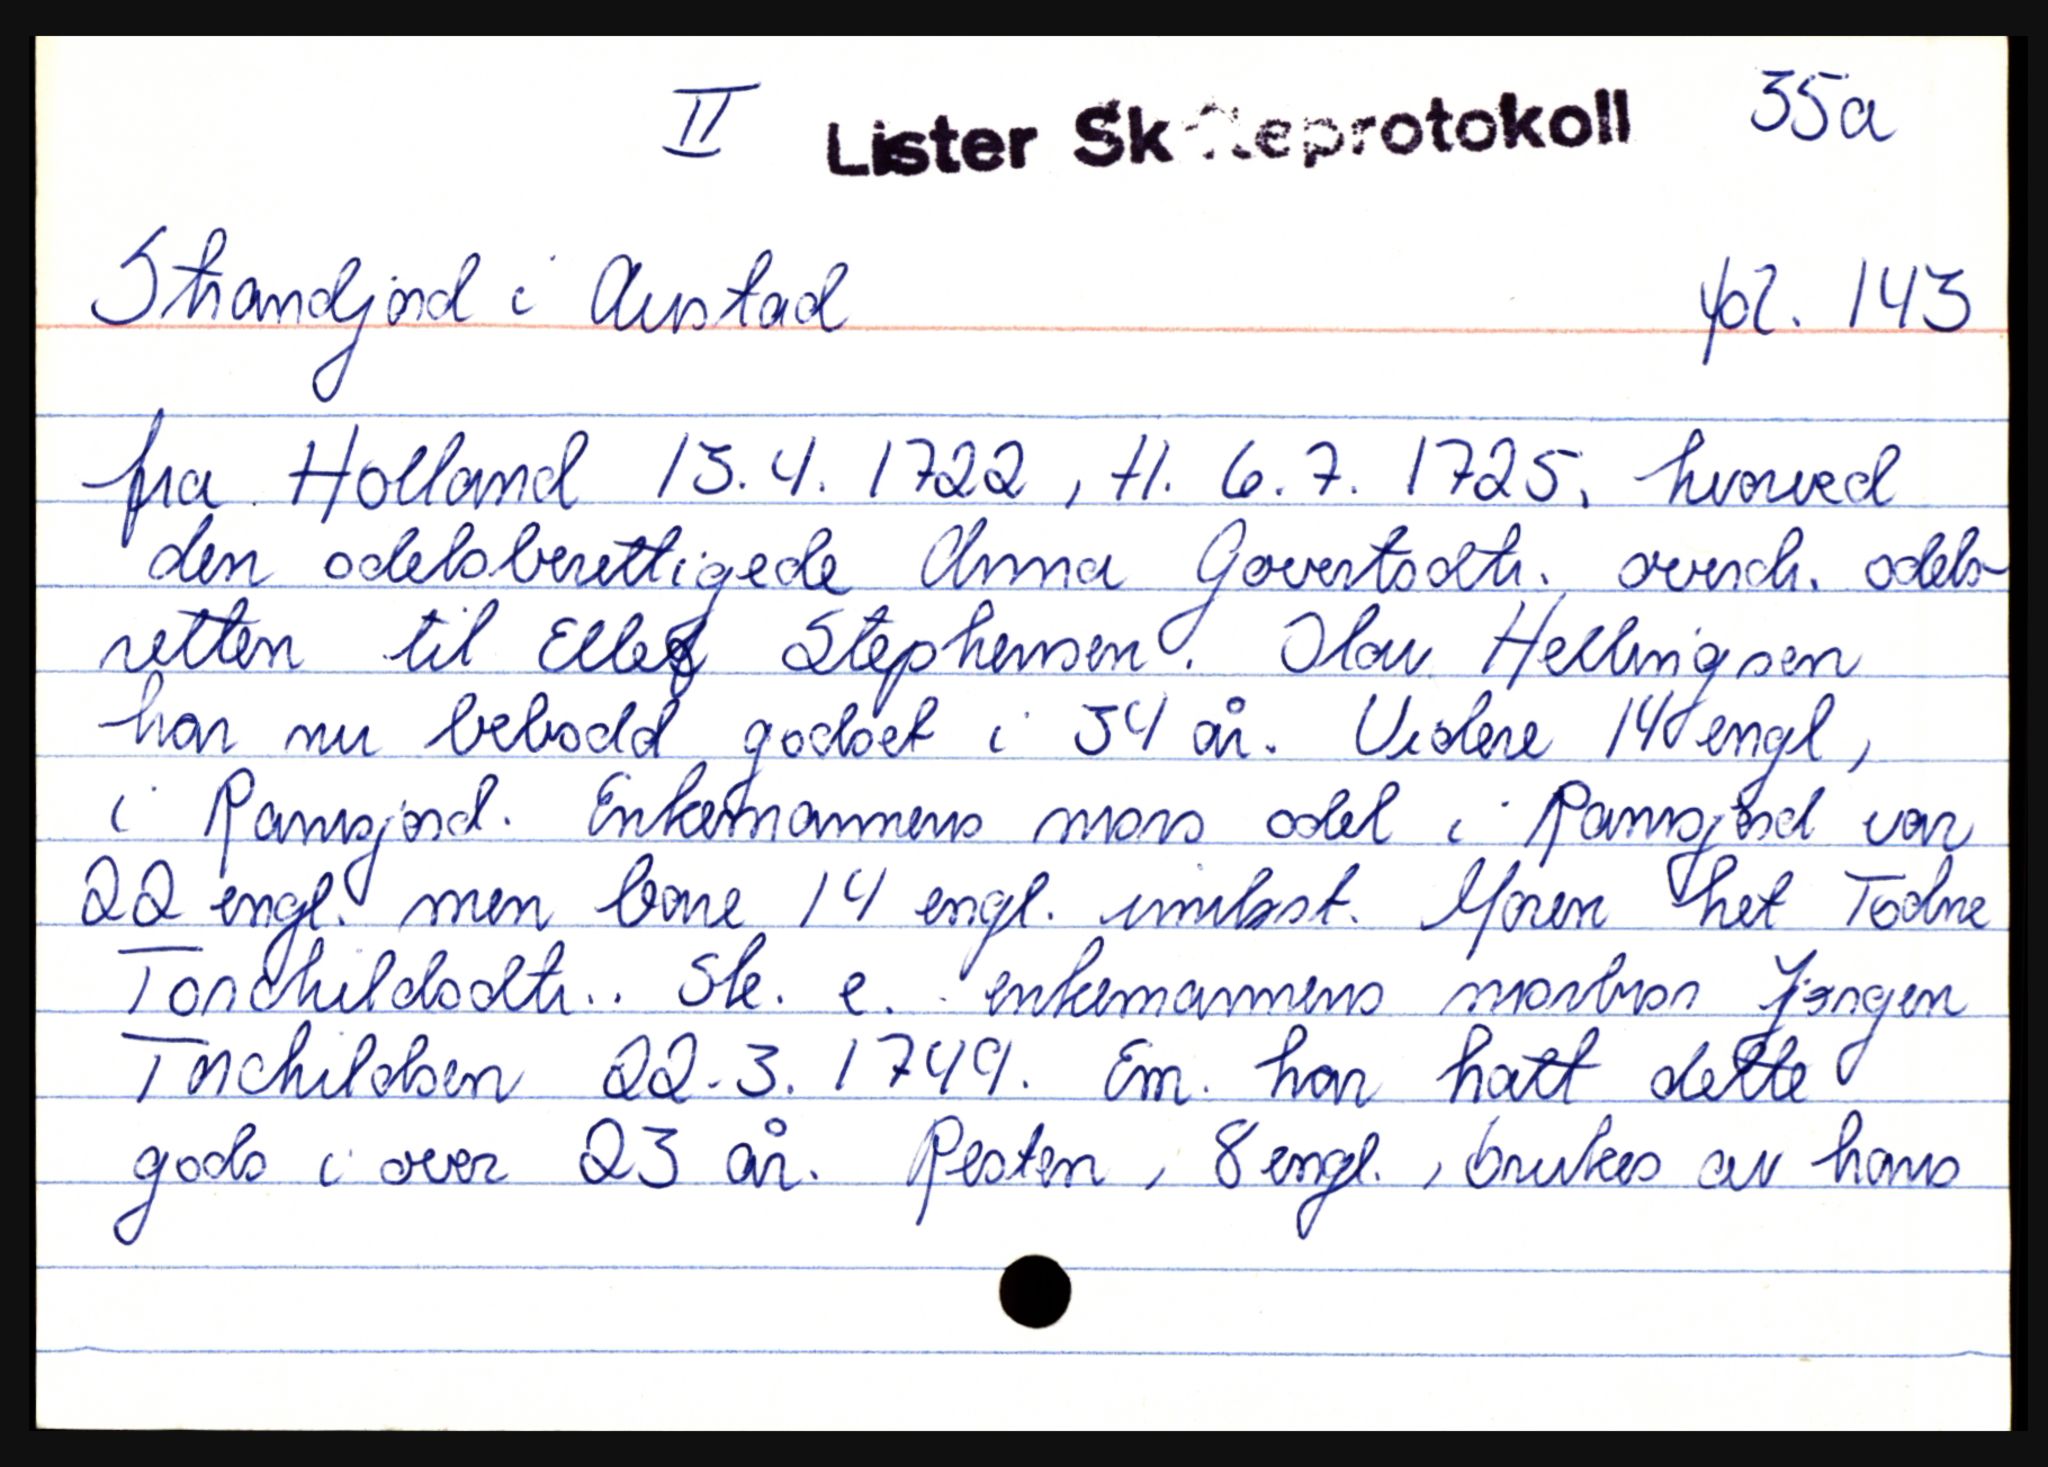 II Lister Skifteprotokoll 35a
Strandjord i Austad fol. 143
fra Holland 13.4.1722, tl. 6.7.1725, hvorved
den odelsberettigede Anna Govertsdtr. overdr. odels-
retten til Ellef Stephensen. Olav Hellingsen
har nu bebodd godset i 34 år. Videre 14 engl,
i Ramsjord. Enkemannens mors odel i Ramsjord var
22 engl. men bare 14 engl. innløst. Moren het Todne
Torchildsdtr.. Sk. e. enkemannens morbror Jørgen
Torchildsen 22.3.1749. Em. har hatt dette
gods i over 23 år. Resten, 8 engl., brukes av hans